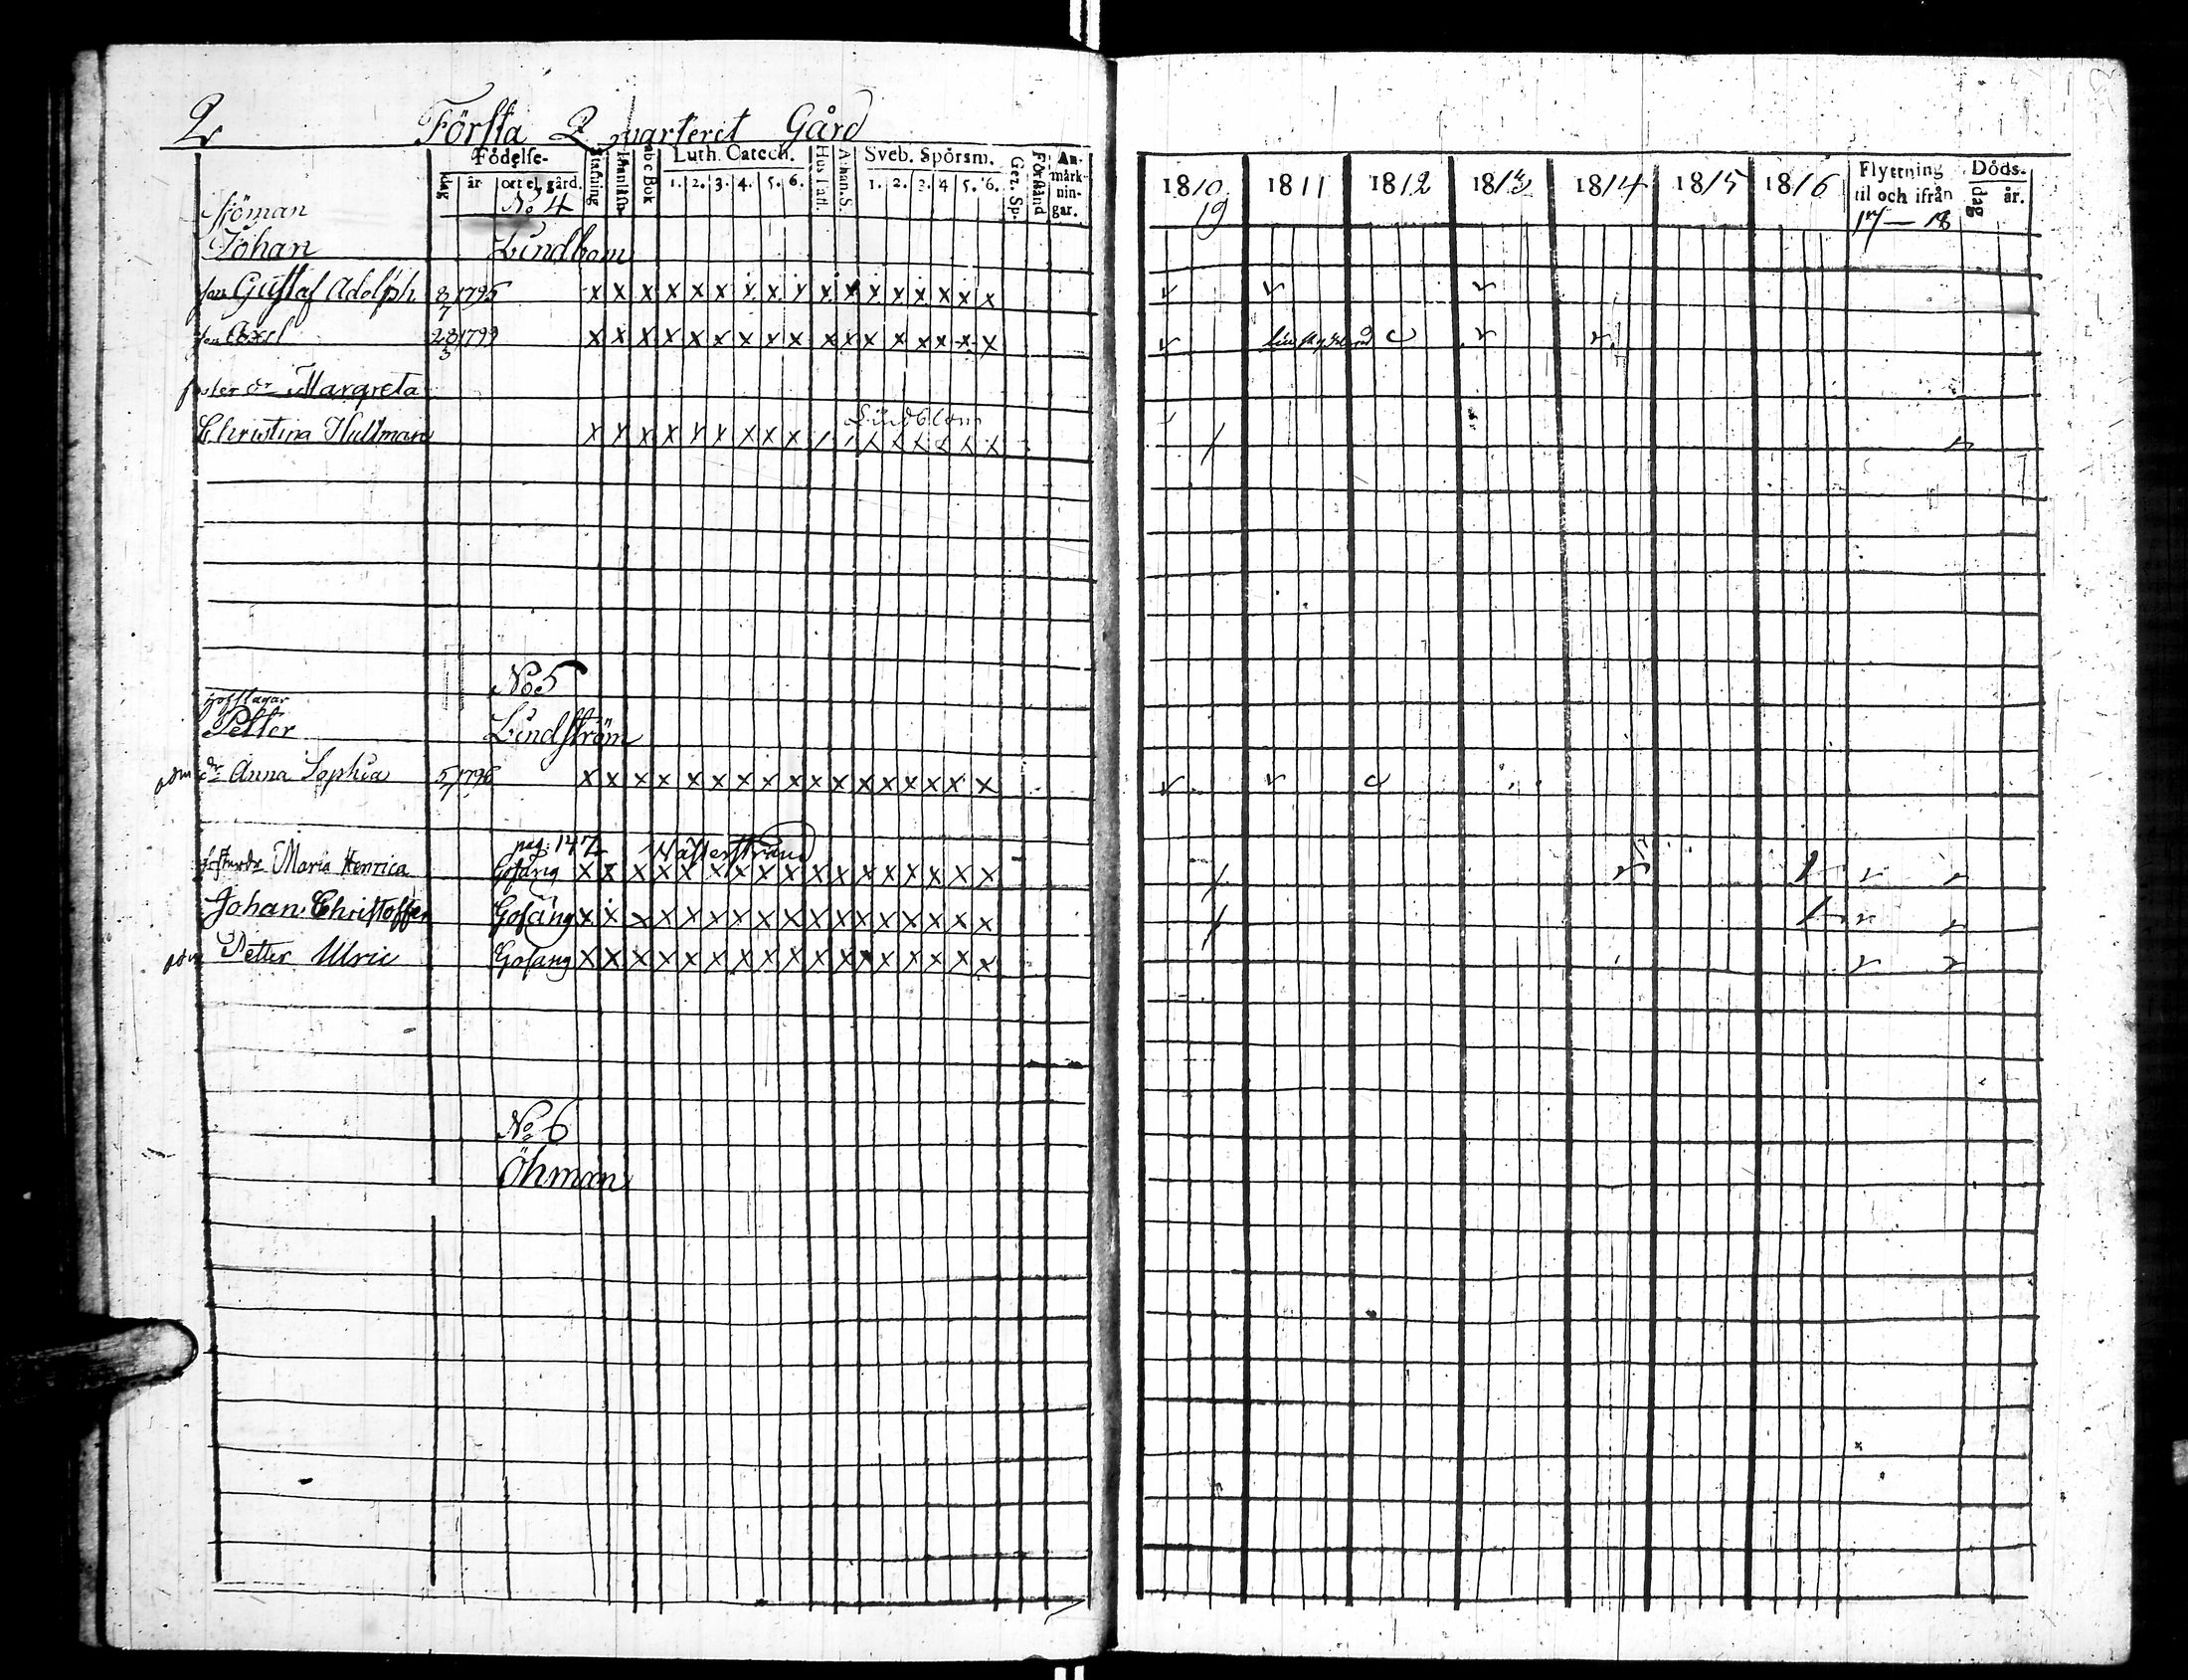 2 Första Quarteret Gård
Födelse-
dag år ort el. gård.
Stafning abc Bok
Luth. Catech.
1. 2. 3. 4. 5. 6.
Hus Tafl. Athan. S.
Sveb. Spörsm.
1. 2. 3. 4 5. 6.
Gez. Sp. Förstånd
An-
märk-
nin-
gar.
1810 1811 1812 1813 1814 1815 1816
19
Flyttning
til och ifrån
17 — 18
Döds-
dag år.
No 4
Sjöman
Johan Lindbom
son Gustaf Adolph 8/7 1795 x x x x x x x x x x x x x x x x x
son Axel 28/3 1799 x x x x x x x x x x x x x x x x x
foster dr Margreta
Lindblom
Christina Hultman x x x x x x x x x x x x x x x
No 5
Petter Lindström
adm dr Anna Sophia 5/7 1796 x x x x x x x x x x x x x x x x x
pag: 147
Maria Henrica x x x x x x x x x x x x x x x x x
Johan Christoffer x x x x x x x x x x x x x x x x x
adm Petter Ulric x x x x x x x x x x x x x x x x x
No 6
Öhman